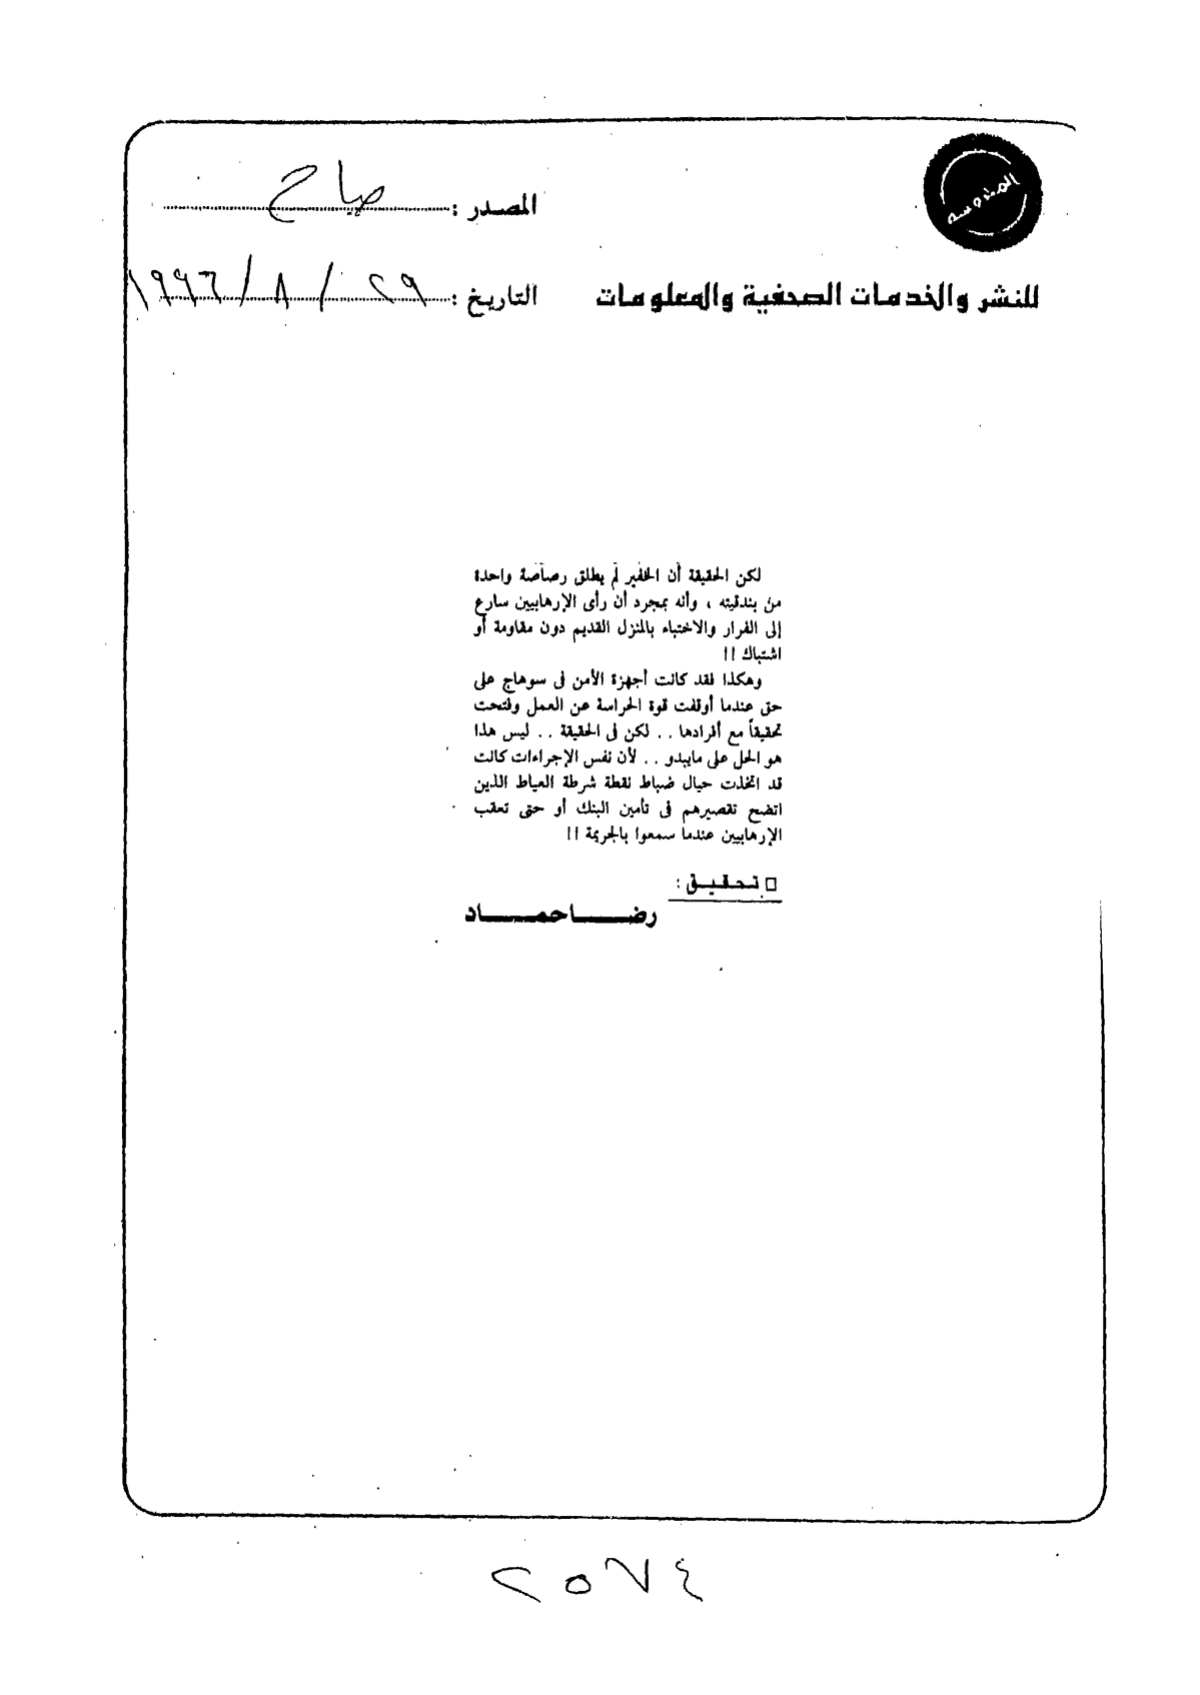 المحروسة
المصدر : صباح
للنشر والخدمات الصحفية والمعلومات
التاريخ : ٢٩ / ٨ / ١٩٩٦
لكن الحقيقة أن الخفير لم يطلق رصاصة واحدة
من بندقيته ، وأنه بمجرد أن رأى الإرهابيين سارع
إلى الفرار والاختباء بالمنزل القديم دون مقاومة أو
اشتباك !!
وهكذا فقد كانت أجهزة الأمن فى سوهاج على
حق عندما أوقفت قوة الحراسة عن العمل وفتحت
تحقيقاً مع أفرادها . . لكن فى الحقيقة . . ليس هذا
هو الحل على مايبدو . . لأن نفس الإجراءات كانت
قد اتخذت حيال ضباط نقطة شرطة العياط الذين
اتضح تقصيرهم فى تأمين البنك أو حتى تعقب
الإرهابيين عندما سمعوا بالجريمة !!
تحقيق :
رضا حماد